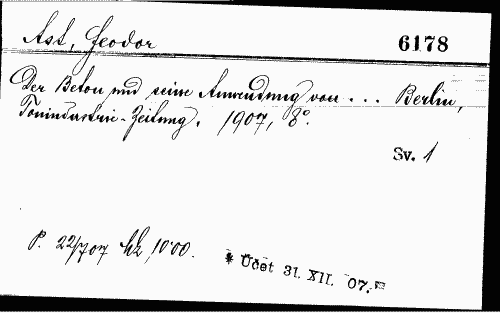 Ast, Feodor 6178
Der Beton und seine Anwendung von ... Berlin,
Tonindustrie-Zeitung. 1907, 8°.
Sv. 1
P. 22/7 07 10·00.
* Účet 31. XII. 07.